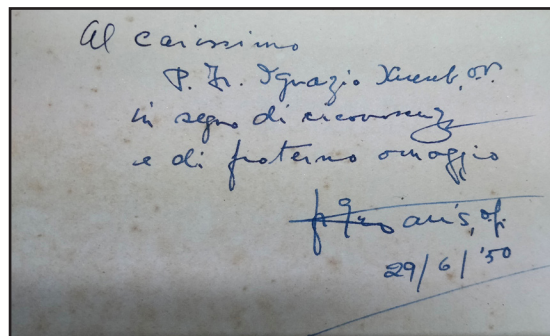 Al carissimo
P. Fr. Ignazio o.p.
in segno di riconoscenza
e di fraterno omaggio
29/6/'50